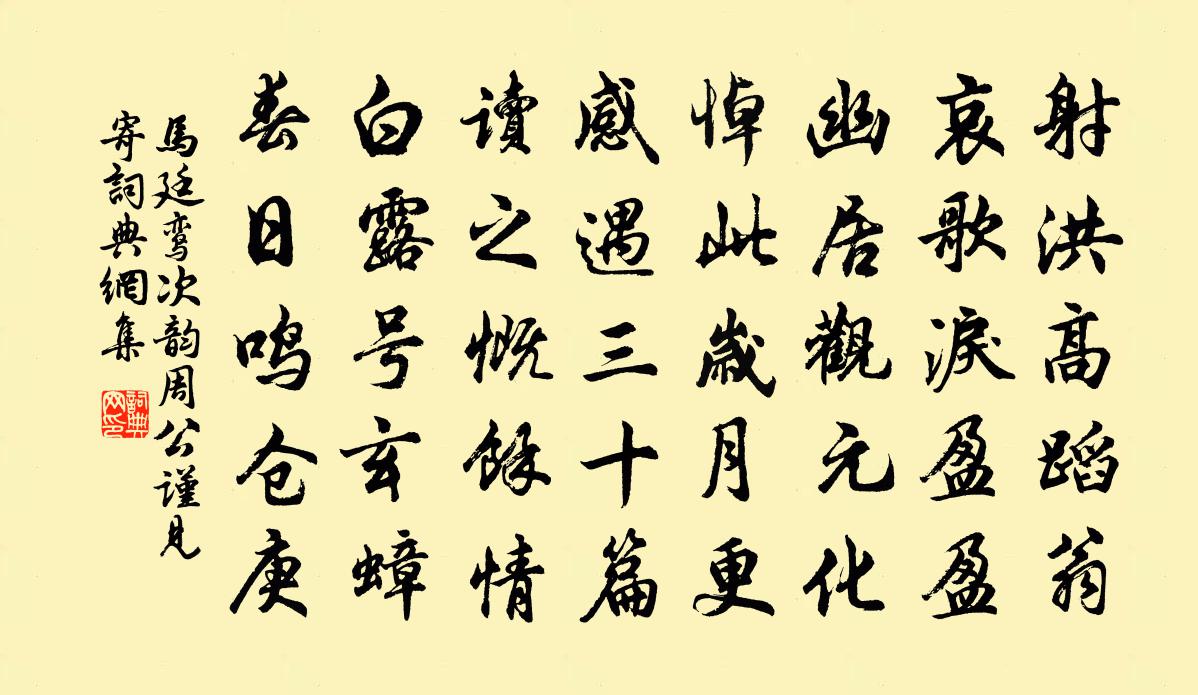 射洪高蹈翁
哀歌淚盈盈
幽居觀元化
悼此歲月更
感遇三十篇
讀之慨餘情
白露号玄蟑
春日鸣仓庚
馬廷鸾次韵周公謹見
寄詞典網集
詞典
网印